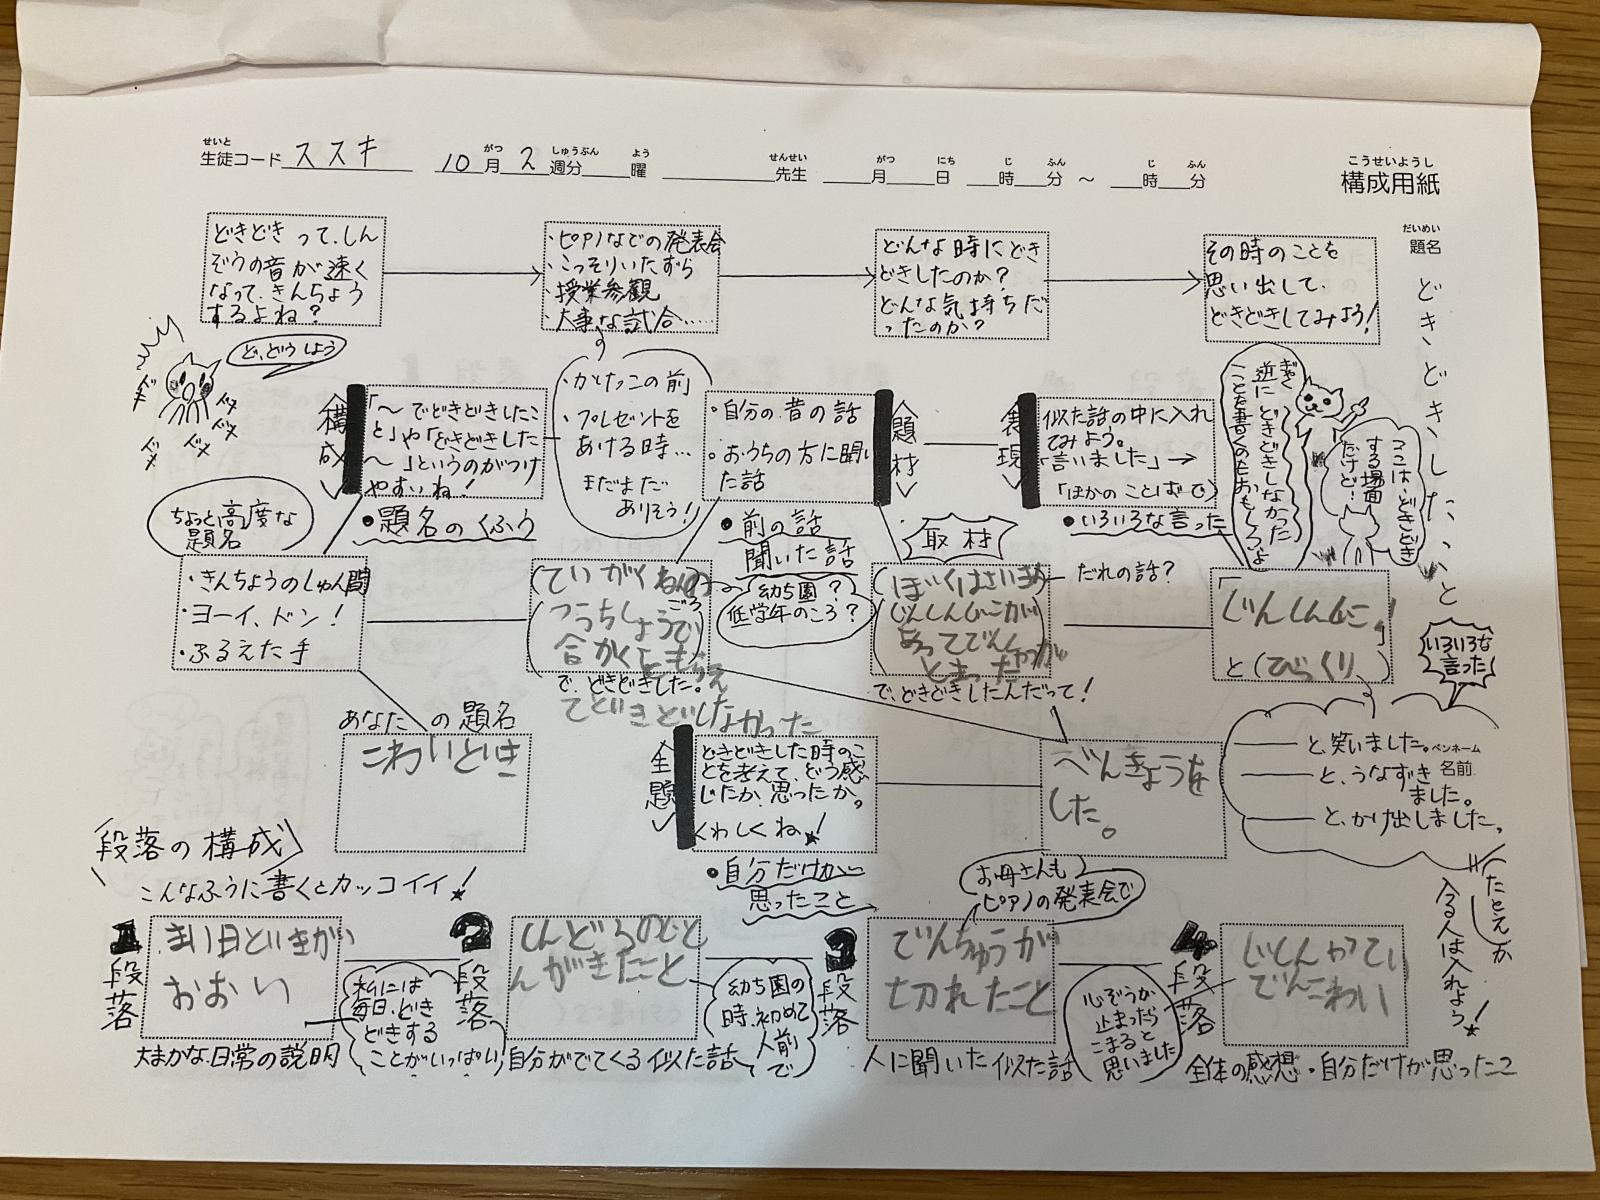 せいと
生徒コード ススキ 10月 2 週分 曜 先生 月 日 時 分 ～ 時 分
がつ しゅうぶん よう せんせい がつ にち じ ふん じ ふん
こうせいようし
構成用紙
だいめい
題名
どきどきしたこと
どきどきって、しん
ぞうの音が速く
なって、きんちょう
するよね？
・ピアノなどの発表会
・こっそりいたずら
・授業参観
・大事な試合……
どんな時にどき
どきしたのか？
どんな気持ちだ
ったのか？
その時のことを
思い出して、
どきどきしてみよう！
ど、どうしよう
＜構成＞
「～でどきどきしたこ
と」や「どきどきした
～」というのがつけ
やすいね！
・題名のくふう
・かけっこの前
・プレゼントを
あける時…
まだまだ
ありそう！
・自分の昔の話
。おうちの方に聞い
た話
＜題材＞
・前の話
聞いた話
＜表現＞
似た話の中に入れ
てみよう。
「言いました」→
「ほかのことばで」
・いろいろな言った
ぎゃく
逆にどきどきしなかった
ことを書くのもおもしろいよ
ココは、どきどき
する場面
だけど！
ちょっと高度な
題名
・きんちょうのしゅん間
・ヨーイ、ドン！
・ふるえた手
(ていがくねんの
ごろ
つうちしょうで
合かくともらえ
で、どきどきした。
てどきどしな
なかった
幼ち園？
低学年のころ？
取材
だれの話？
じんしんじこが
あってでんしゃが
とまった
で、どきどきしたんだって！
「じんしんじこ」
と（びっくり）
いろいろな
言った
―― と、笑いました。
―― と、うなずき
ました。
―― と、かけ出しました。
ペンネーム
名前
あなた の題名
こわいとき
＜全題＞
どきどきした時のこ
とを考えて、どう感
じたか、思ったか。
くわしくね！
・自分だけが
思ったこと
べんきょうを
した。
段落の構成
こんなふうに書くとカッコイイ！
お母さんも
ピアノの発表会で
たとえが
入る人は入れよう！
1段落
まい日どいきが
おおい
私には
毎日、どき
どきする
ことがいっぱい！
大まかな日常の説明
2段落
しんどろのじと
んがきたこと
幼ち園の
時、初めて
人前で
自分がでてくる似た話
3段落
でんちゅうが
切れたこと
心ぞうが
止まったら
こまると
思いました
人に聞いた似た話
4段落
でんこわい
全体の感想・自分だけが思ったこと